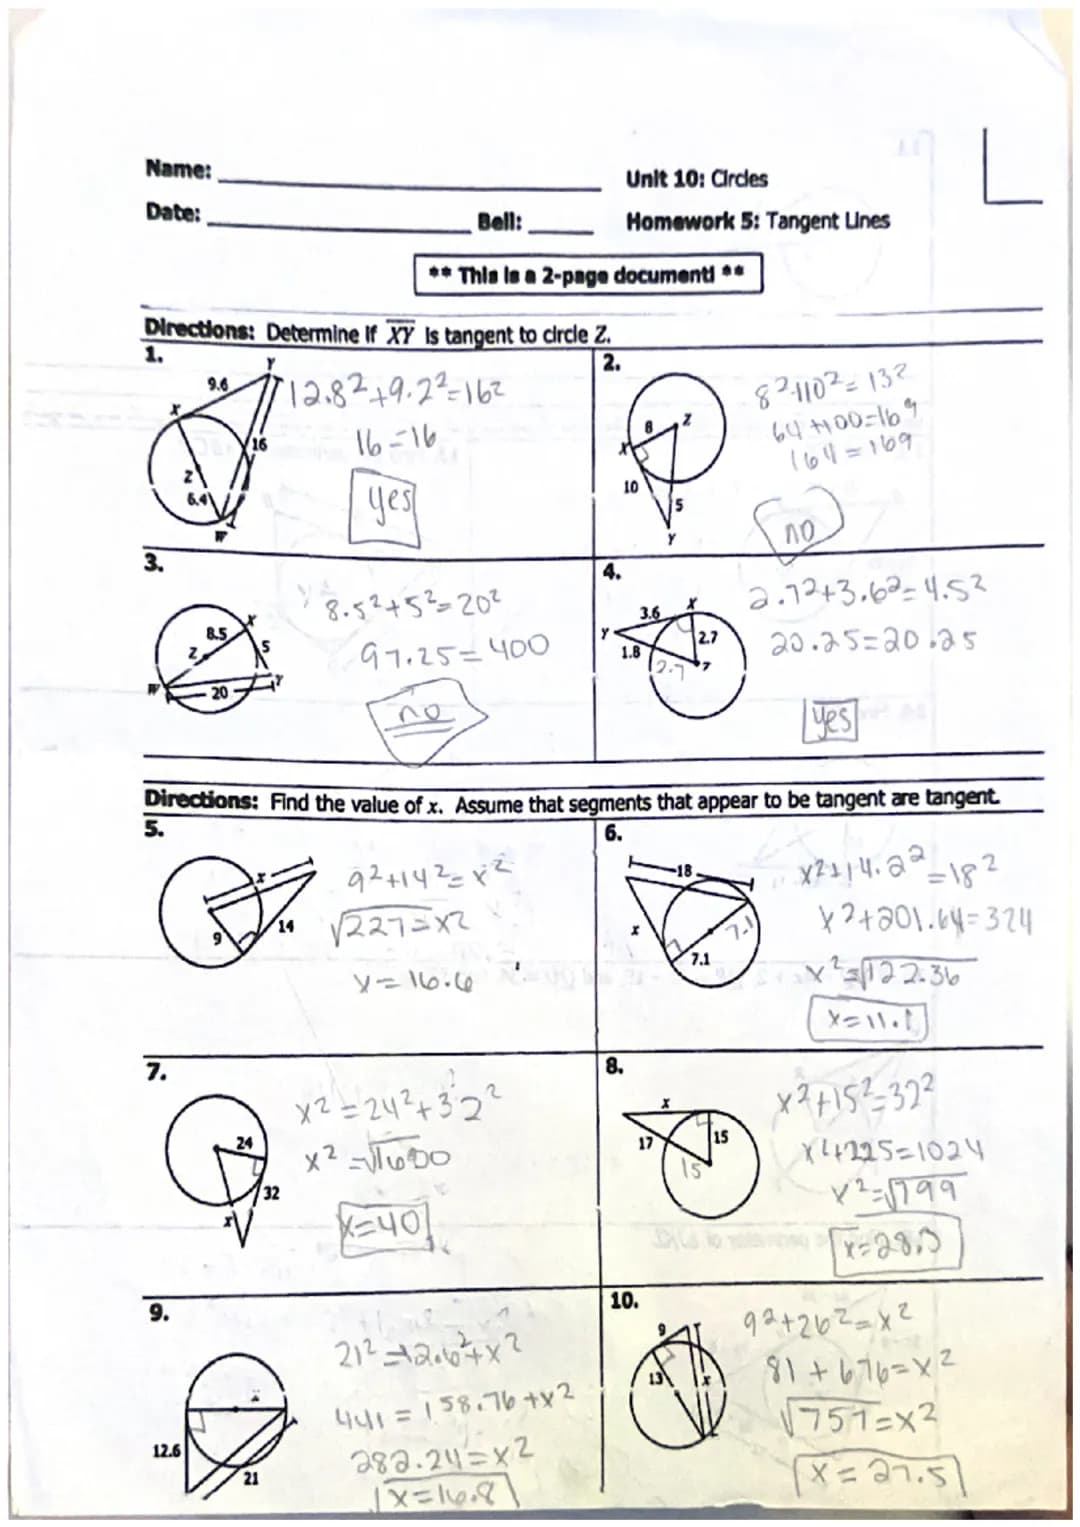 Name:
Unit 10: Circles
Date:
Bell:
Homework 5: Tangent Lines
** This is a 2-page document! **
Directions: Determine if XY is tangent to circle Z.
1.
Y
9.6
X
16
Z
6.4
W
12.8²+9.2²=16²
16=16
yes
2.
8
Z
X
10
5
Y
8²+10²=13²
64+100=169
164=169
no
3.
8.5
X
Z
5
W
20
Y
8.5²+5²=20²
97.25=400
no
4.
3.6
X
Y
2.7
1.8
2.7
Z
2.7²+3.6²=4.5²
20.25=20.25
yes
Directions: Find the value of x. Assume that segments that appear to be tangent are tangent.
5.
x
9
14
9²+14²=x²
√227=x²
x=16.6
6.
18
x
7.1
7.1
x²+14.2²=18²
x²+201.64=324
x²=√122.36
x=11.1
7.
24
32
x
x²=24²+32²
x²=√1600
x=40
8.
x
17
15
15
x²+15²=32²
x²+225=1024
x²=√799
x=28.3
9.
x
12.6
21
21²=12.6²+x²
441=158.76+x²
282.24=x²
x=16.8
10.
9
13
x
9²+26²=x²
81+676=x²
√757=x²
x=27.5